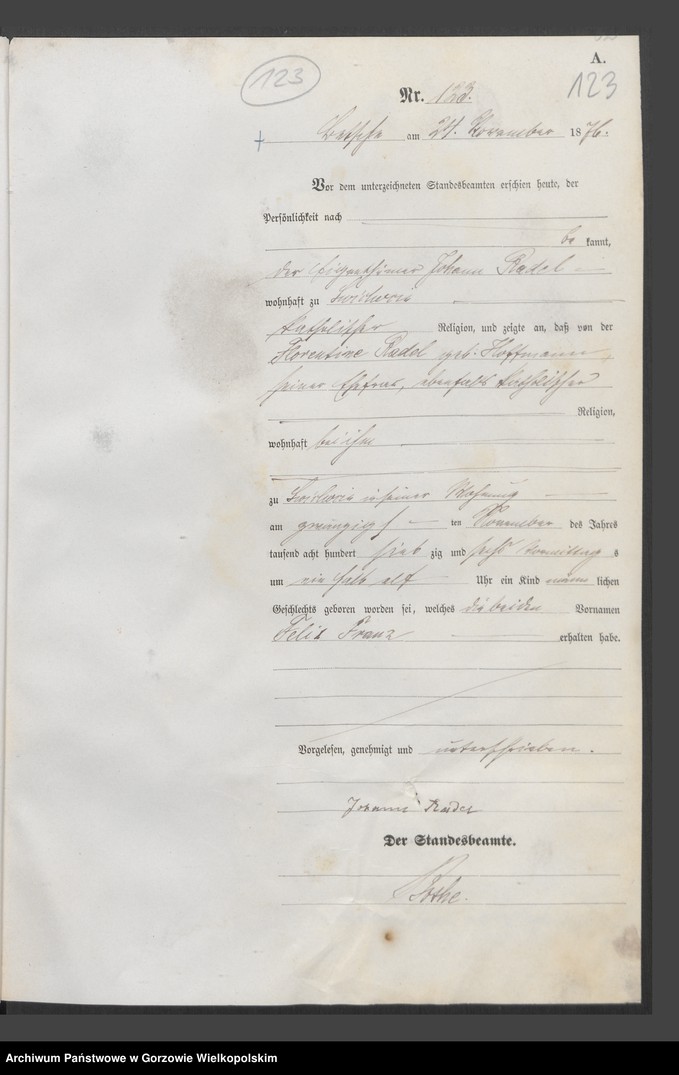 123
A.
123
Nr. 123.
Betsche am 24. November 1876.
Vor dem unterzeichneten Standesbeamten erschien heute, der
Persönlichkeit nach
be kannt,
der Eigenthümer Johann Radel
wohnhaft zu
katholischer Religion, und zeigte an, daß von der
Florentine Radel geb. Hoffmann,
seiner Ehefrau, ebenfalls katholischer
Religion,
wohnhaft bei ihm
zu in seiner Wohnung
am zwanzigsten November des Jahres
tausend acht hundert sieb zig und sechs Vormittag s
um ein halb elf Uhr ein Kind männ lichen
Geschlechts geboren worden sei, welches die beiden Vornamen
Felix Franz erhalten habe.
Vorgelesen, genehmigt und unterschrieben.
Johann Radel
Der Standesbeamte.
Archiwum Państwowe w Gorzowie Wielkopolskim